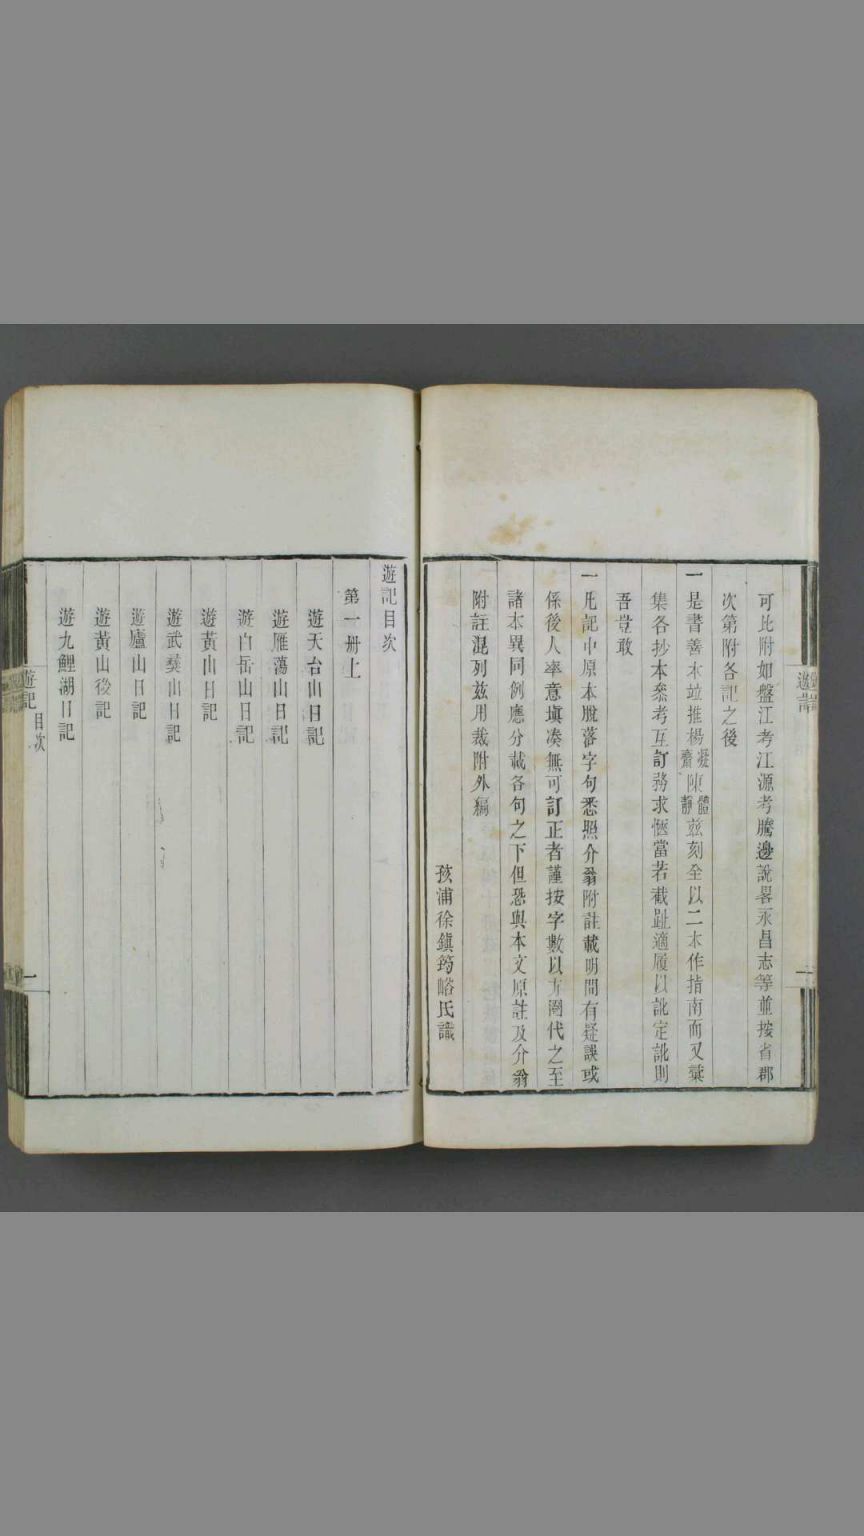 可比附如盤江考江源考騰邊說畧永昌志等並按省郡
次第附各記之後
一是書善本竝推楊凝齋陳體靜茲刻全以二本作指南而又彙
集各抄本叅考互訂務求愜當若截趾適履以訛定訛則
吾豈敢
一凡記中原本脫落字句悉照介翁附註載明間有疑誤或
係後人率意塡凑無可訂正者謹按字數以方圍代之至
諸本異同例應分載各句之下但恐與本文原註及介翁
附註混列茲用裁附外編
孩浦徐鎭筠峪氏識
遊記
一
遊記目次
第一册上
遊天台山日記
遊雁蕩山日記
遊白岳山日記
遊黃山日記
遊武彝山日記
遊廬山日記
遊黃山後記
遊九鯉湖日記
遊記 目次
一